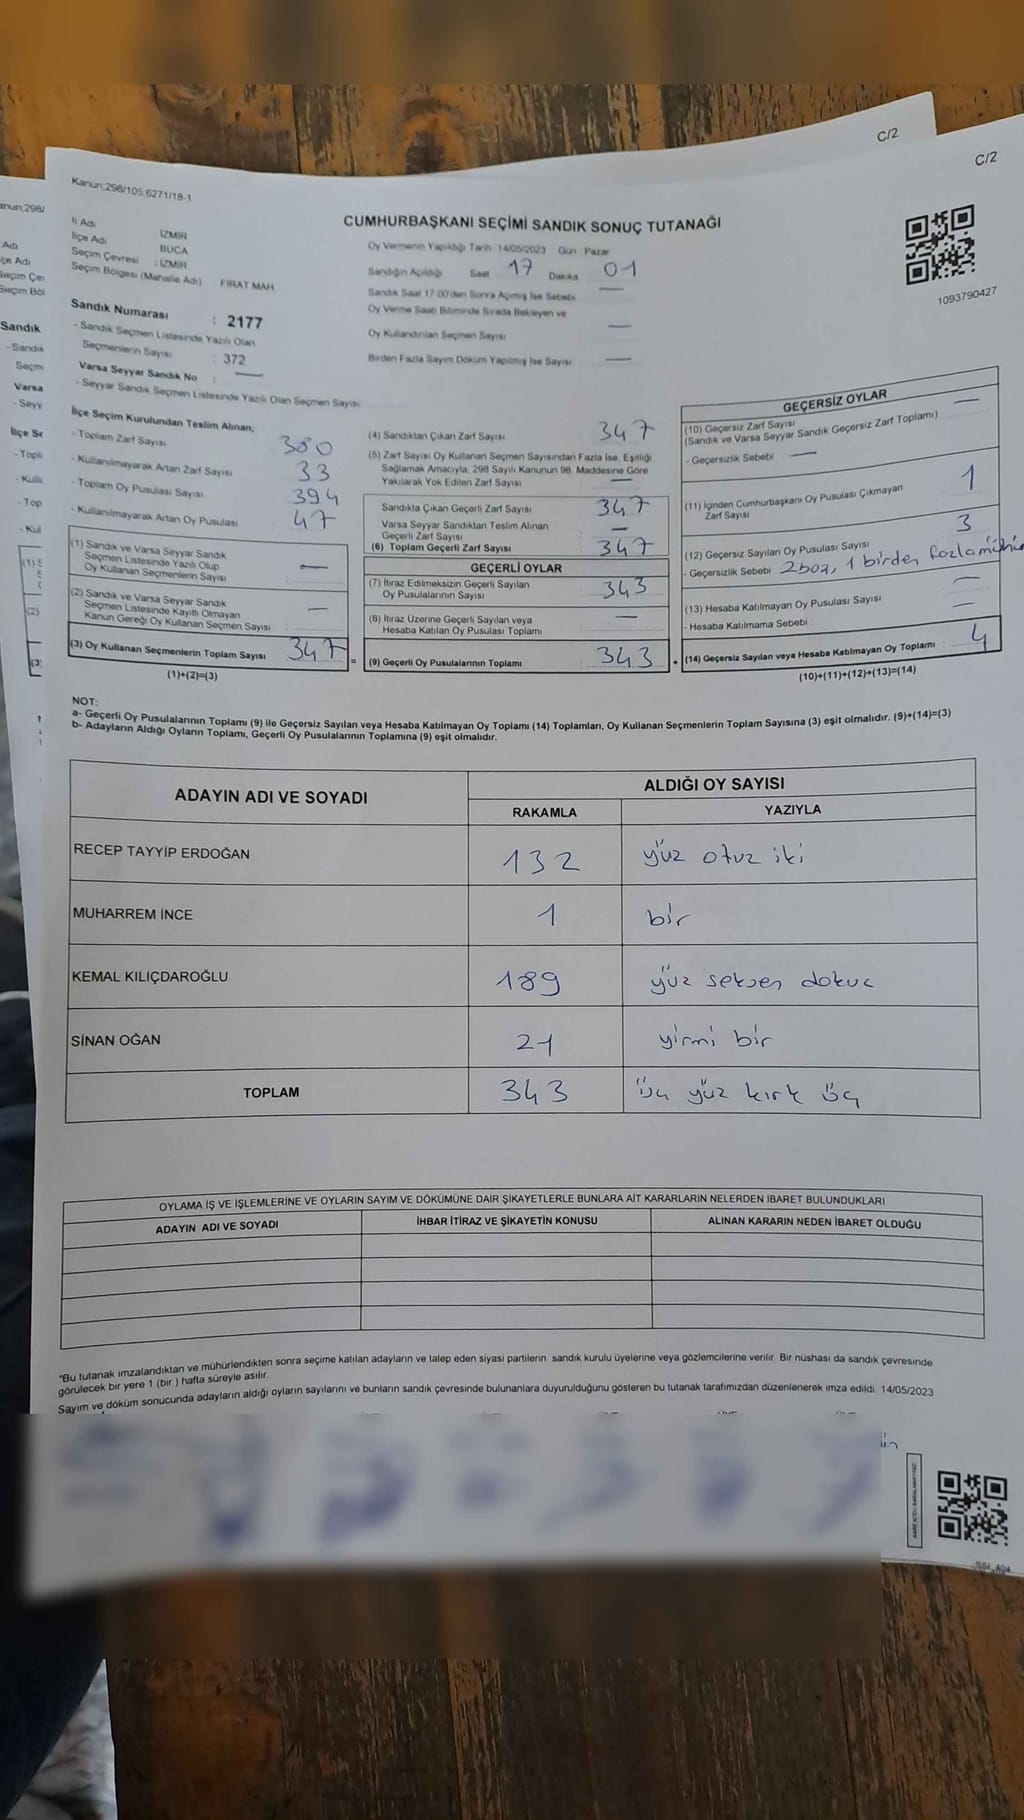 C/2
C/2
Kanun;298/105;6271/18-1
CUMHURBAŞKANI SEÇİMİ SANDIK SONUÇ TUTANAĞI
İl Adı İZMİR
İlçe Adı BUCA
Seçim Çevresi : İZMİR
Seçim Bölgesi (Mahalle Adı) FIRAT MAH.
Oy Vermenin Yapıldığı Tarih 14/05/2023 Gün Pazar
Sandığın Açıldığı Saat 17 Dakika 01
Sandık Saat 17.00'den Sonra Açılmış İse Sebebi —
Oy Verme Saati Bitiminde Sırada Bekleyen ve
Oy Kullandırılan Seçmen Sayısı —
Birden Fazla Sayım Döküm Yapılmış İse Sayısı —
1093790427
Sandık Numarası : 2177
- Sandık Seçmen Listesinde Yazılı Olan
Seçmenlerin Sayısı : 372
Varsa Seyyar Sandık No : —
- Seyyar Sandık Seçmen Listesinde Yazılı Olan Seçmen Sayısı
İlçe Seçim Kurulundan Teslim Alınan;
- Toplam Zarf Sayısı 380
- Kullanılmayarak Artan Zarf Sayısı 33
- Toplam Oy Pusulası Sayısı 394
- Kullanılmayarak Artan Oy Pusulası 47
(1) Sandık ve Varsa Seyyar Sandık
Seçmen Listesinde Yazılı Olup
Oy Kullanan Seçmenlerin Sayısı —
(2) Sandık ve Varsa Seyyar Sandık
Seçmen Listesinde Kayıtlı Olmayan
Kanun Gereği Oy Kullanan Seçmen Sayısı —
(3) Oy Kullanan Seçmenlerin Toplam Sayısı 347
(1)+(2)=(3)
(4) Sandıktan Çıkan Zarf Sayısı 347
(5) Zarf Sayısı Oy Kullanan Seçmen Sayısından Fazla İse, Eşitliği
Sağlamak Amacıyla, 298 Sayılı Kanunun 98. Maddesine Göre
Yakılarak Yok Edilen Zarf Sayısı —
Sandıkta Çıkan Geçerli Zarf Sayısı 347
Varsa Seyyar Sandıktan Teslim Alınan
Geçerli Zarf Sayısı —
(6) Toplam Geçerli Zarf Sayısı 347
GEÇERLİ OYLAR
(7) İtiraz Edilmeksizin Geçerli Sayılan
Oy Pusulalarının Sayısı 343
(8) İtiraz Üzerine Geçerli Sayılan veya
Hesaba Katılan Oy Pusulası Toplamı —
= (9) Geçerli Oy Pusulalarının Toplamı 343
GEÇERSİZ OYLAR
(10) Geçersiz Zarf Sayısı —
(Sandık ve Varsa Seyyar Sandık Geçersiz Zarf Toplamı)
- Geçersizlik Sebebi —
(11) İçinden Cumhurbaşkanı Oy Pusulası Çıkmayan
Zarf Sayısı 1
(12) Geçersiz Sayılan Oy Pusulası Sayısı 3
- Geçersizlik Sebebi 2 boş, 1 birden fazla mühür
(13) Hesaba Katılmayan Oy Pusulası Sayısı —
- Hesaba Katılmama Sebebi : —
+ (14) Geçersiz Sayılan veya Hesaba Katılmayan Oy Toplamı : 4
(10)+(11)+(12)+(13)=(14)
NOT:
a- Geçerli Oy Pusulalarının Toplamı (9) ile Geçersiz Sayılan veya Hesaba Katılmayan Oy Toplamı (14) Toplamları, Oy Kullanan Seçmenlerin Toplam Sayısına (3) eşit olmalıdır. (9)+(14)=(3)
b- Adayların Aldığı Oyların Toplamı, Geçerli Oy Pusulalarının Toplamına (9) eşit olmalıdır.
ADAYIN ADI VE SOYADI ALDIĞI OY SAYISI
RAKAMLA YAZIYLA
RECEP TAYYİP ERDOĞAN 132 yüz otuz iki
MUHARREM İNCE 1 bir
KEMAL KILIÇDAROĞLU 189 yüz seksen dokuz
SİNAN OĞAN 21 yirmi bir
TOPLAM 343 üç yüz kırk üç
OYLAMA İŞ VE İŞLEMLERİNE VE OYLARIN SAYIM VE DÖKÜMÜNE DAİR ŞİKAYETLERLE BUNLARA AİT KARARLARIN NELERDEN İBARET BULUNDUKLARI
ADAYIN ADI VE SOYADI İHBAR İTİRAZ VE ŞİKAYETİN KONUSU ALINAN KARARIN NEDEN İBARET OLDUĞU
*Bu tutanak imzalandıktan ve mühürlendikten sonra seçime katılan adayların ve talep eden siyasi partilerin sandık kurulu üyelerine veya gözlemcilerine verilir. Bir nüshası da sandık çevresinde
görülecek bir yere 1 (bir ) hafta süreyle asılır.
Sayım ve döküm sonucunda adayların aldığı oyların sayılarını ve bunların sandık çevresinde bulunanlara duyurulduğunu gösteren bu tutanak tarafımızdan düzenlenerek imza edildi. 14/05/2023